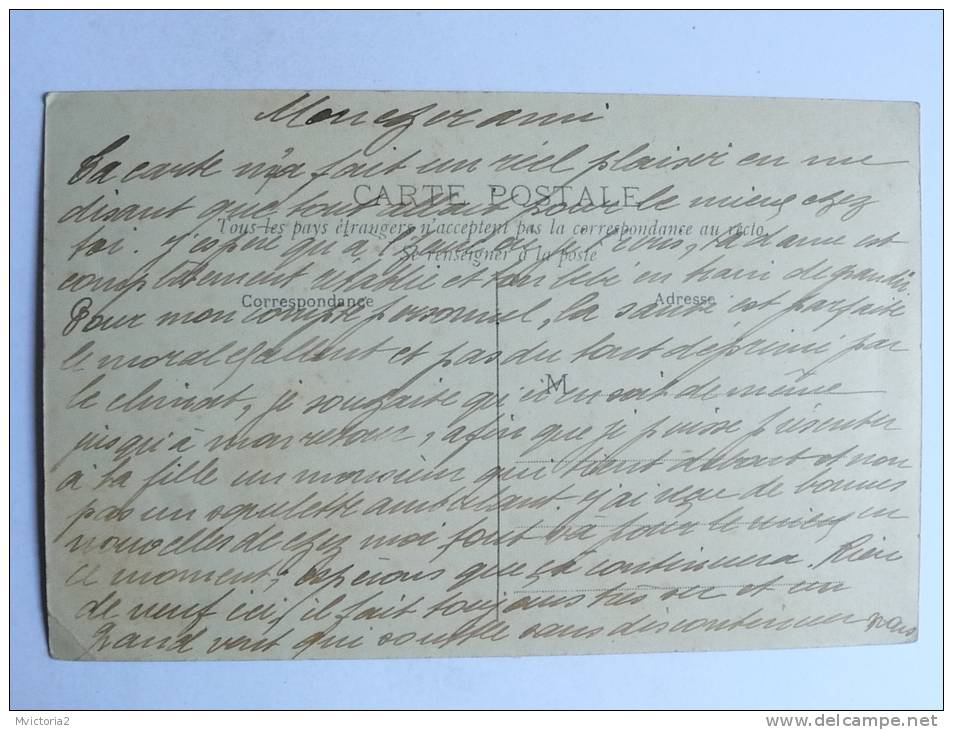 Mon cher ami
Ta carte m'a fait un réel plaisir en me
CARTE POSTALE
disant que tout allait pour le mieux chez
Tous les pays étrangers n'acceptent pas la correspondance au recto
toi. J'espère qu'à l'heure ta dame est
Se renseigner à la poste
complètement rétablie et ton bébé en train de grandir
Correspondance
Adresse
Pour mon compte personnel, la santé est parfaite
le moral excellent et pas du tout déprimé par
M
le climat, je souhaite qu'il en soit de même
jusqu'à mon retour, afin que je puisse présenter
à ta fille un monsieur qui tient debout et non
pas un squelette ambulant. J'ai reçu de bonnes
nouvelles de chez moi tout va pour le mieux en
ce moment, espérons que ça continuera. Rien
de neuf ici, il fait toujours très sec et un
grand vent qui souffle sans discontinuer mais
Mvictoria2
www.delcampe.net